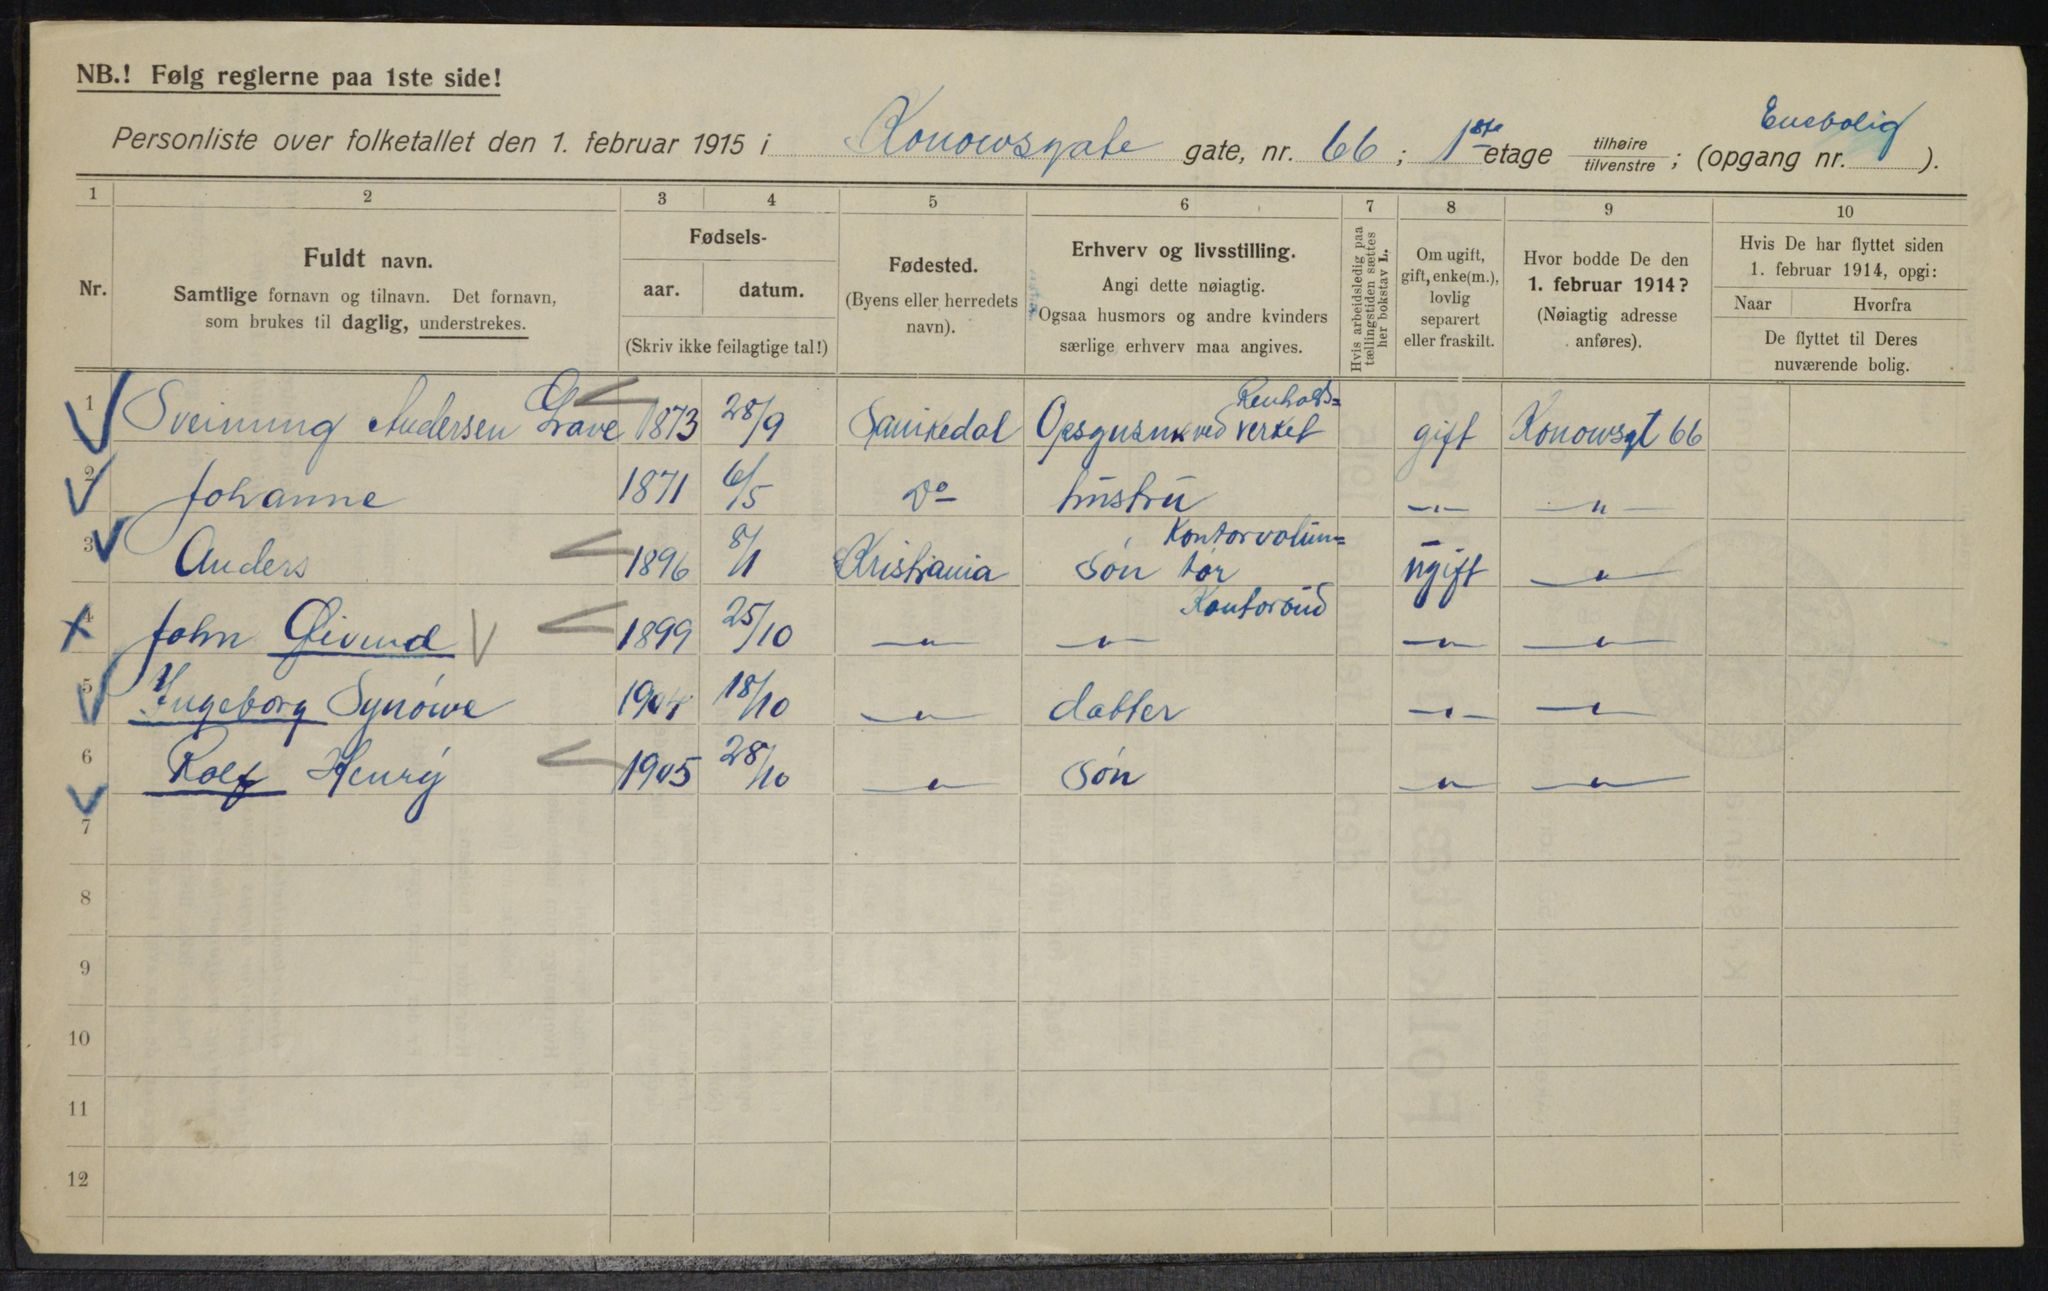 NB.! Følg reglerne paa 1ste side!
Enebolig
Personliste over folketallet den 1. februar 1915 i Konowsgate gate, nr. 66; 1ste etage tilhøire/tilvenstre; (opgang nr. ).
1 2 3 4 5 6 7 8 9 10
Nr.
Fuldt navn.
Samtlige fornavn og tilnavn. Det fornavn,
som brukes til daglig, understrekes.
Fødsels-
aar. datum.
(Skriv ikke feilagtige tal!)
Fødested.
(Byens eller herredets
navn).
Erhverv og livsstilling.
Angi dette nøiagtig.
Ogsaa husmors og andre kvinders
særlige erhverv maa angives.
Hvis arbeidsledig paa
tællingstiden sættes
her bokstav L.
Om ugift,
gift, enke(m.),
lovlig
separert
eller fraskilt.
Hvor bodde De den
1. februar 1914?
(Nøiagtig adresse
anføres).
Hvis De har flyttet siden
1. februar 1914, opgi:
Naar Hvorfra
De flyttet til Deres
nuværende bolig.
Renholds=
1 Sveinung Andersen 1873 28/9 Sanikedal ved verket gift Konowsgt 66
2 Johanne 1871 6/5 Do hustru — " — — " —
Kontorvolun=
3 Anders 1896 8/1 Kristiania søn tør ugift — " —
Kontorbud
4 John Øivind 1899 25/10 — " — — " — — " — — " —
5 Ingeborg Synøve 1904 18/10 — " — datter — " — — " —
6 Rolf Henry 1905 28/10 — " — søn — " — — " —
7
8
9
10
11
12